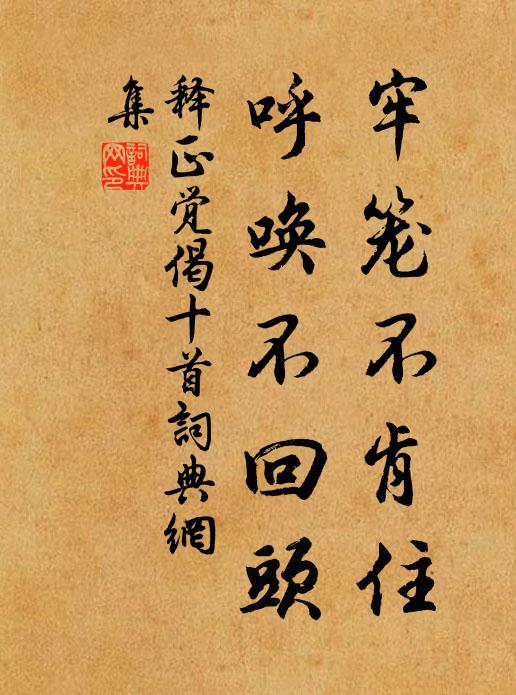 牢笼不肯住
呼唤不回頭
释正觉偈十首詞典網
集
詞典
网印